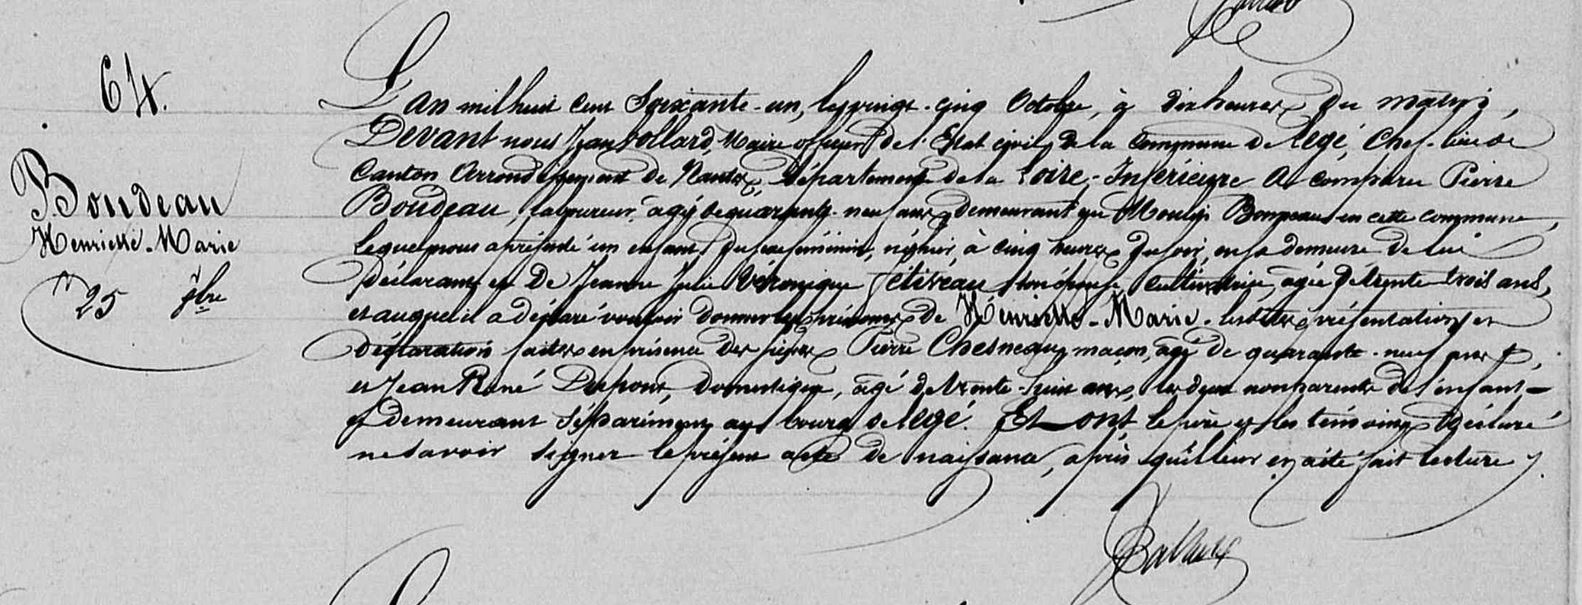 64.
Boudeau
Henriette-Marie
25 9bre
L'an mil huit cent soixante-un, le vingt-cinq Octobre, à dix heures du matin,
Devant nous Jean Collard, Maire officier de l'Etat civil de la Commune de Legé, Chef-lieu de
Canton Arrondissement de Nantes, Département de la Loire-Inférieure A comparu Pierre
Boudeau laboureur, âgé de quarante-neuf ans, demeurant au Moulin Bompeau en cette commune,
lequel nous a présenté un enfant du sexe féminin, né hier, à cinq heures du soir, en sa demeure de lui
déclarant et De Jeanne Julie Véronique son épouse, cultivatrice, âgée de trente trois ans,
et auquel il a déclaré vouloir donner les prénoms de Henriette-Marie. Lesdites présentation et
déclaration faites en présence des sieurs Pierre Chesneau, maçon, âgé de quarante-neuf ans,
et Jean René Domestique, âgé de trente-huit ans, les deux non parents de l'enfant
demeurant séparément au bourg de Legé. Et ont le père et les témoins déclaré
ne savoir signer le présent acte de naissance, après qu'il leur en a été fait lecture